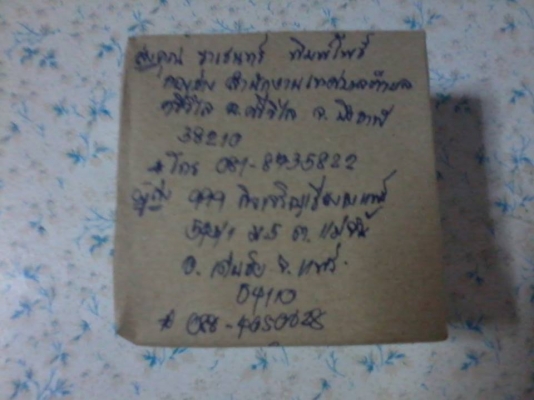 ส่ง คุณ ราเชนทร์ พิมพ์โพธิ์
กองช่าง สำนักงานเทศบาลตำบล
ศรีวิไล อ.ศรีวิไล จ.บึงกาฬ
38210
โทร 081-8735822
ผู้ส่ง กิจเจริญเรืองยนต์
ม.5 ต.แม่จั๊วะ
อ.เด่นชัย จ.แพร่.
54110